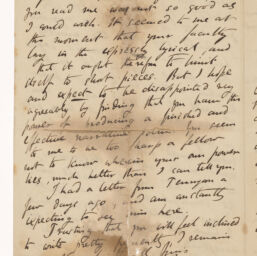 you read me was not so good as
I could wish. It seemed to me at
this moment that your faculty
lay in the expressly lyrical, and
that it ought therefore to limit
itself to short pieces. But I hope
and expect to be disappointed very
agreeably by finding that you have this
power of producing a finished and
effective narrative poem. You seem
to me to be too sharp a fellow
not to know wherein your own power
lies, much better than I can tell you.
I had a letter from Tennyson a
few days ago, and am instantly
expecting to see him here.
Trusting that you will feel inclined
to write pretty I remain